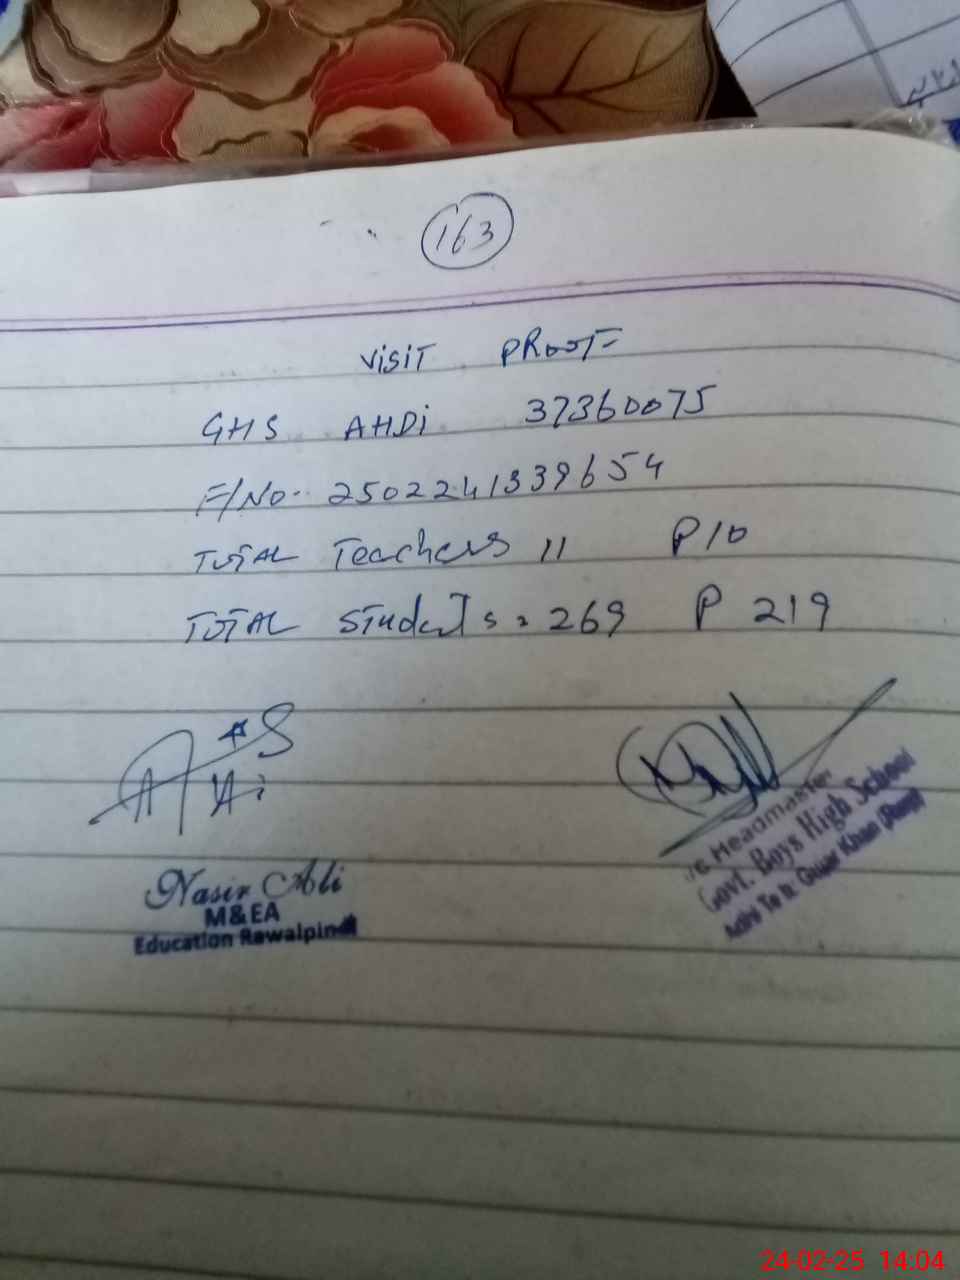 163
VISIT PROOF
GHS AHDI 37360075
F/NO. 2502241339654
TOTAL Teachers 11 P10
TOTAL Students = 269 P 219
Nasir Ali
M&EA
Education Rawalpindi
Headmaster
Govt. Boys High School
24-02-25 14:04